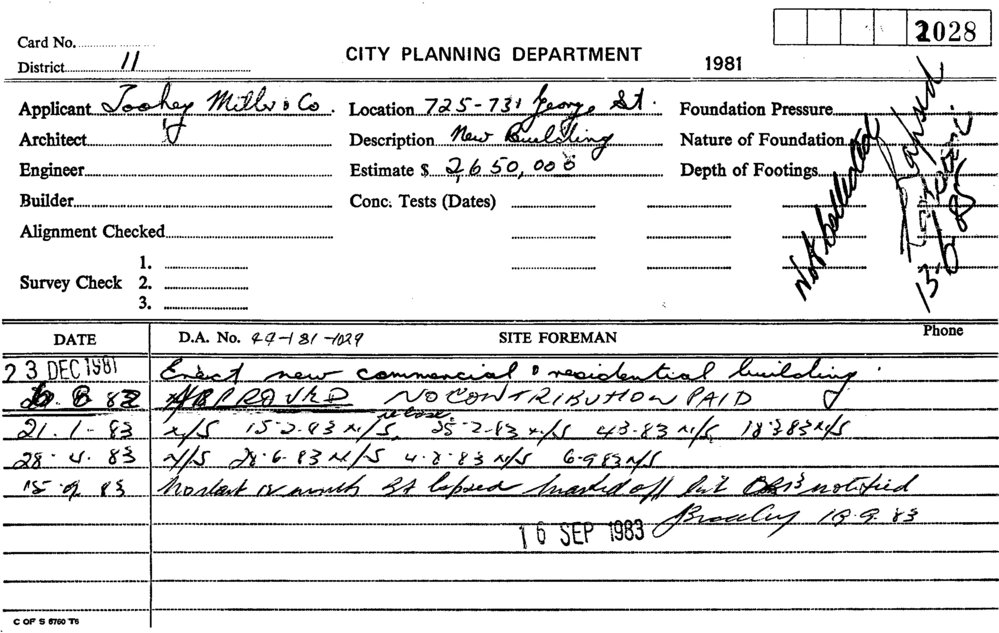 2028
Card No.
District 11
CITY PLANNING DEPARTMENT
1981
Applicant Toohey Miller & Co. Location 725-731 George St. Foundation Pressure
Architect Description New Building Nature of Foundation
Engineer Estimate $ 2,650,000 Depth of Footings
Builder Conc. Tests (Dates)
Alignment Checked
Not Collected
Lapsed
13/6/85
Survey Check 1.
2.
3.
DATE D.A. No. 44-81-1029 SITE FOREMAN Phone
23 DEC 1981 Erect new commercial & residential building.
82 APPROVED NO CONTRIBUTION PAID
21.1-83 N/S 15-2-83 N/S 25-2-83 N/S 4-3-83 N/S 18-3-83 N/S
28-4-83 N/S 28-6-83 N/S 4-8-83 N/S 6-9-83 N/S
15-9-83 No start 12 months lapsed marked off list notified
16 SEP 1983 19.9.83
C OF S 6760 T6